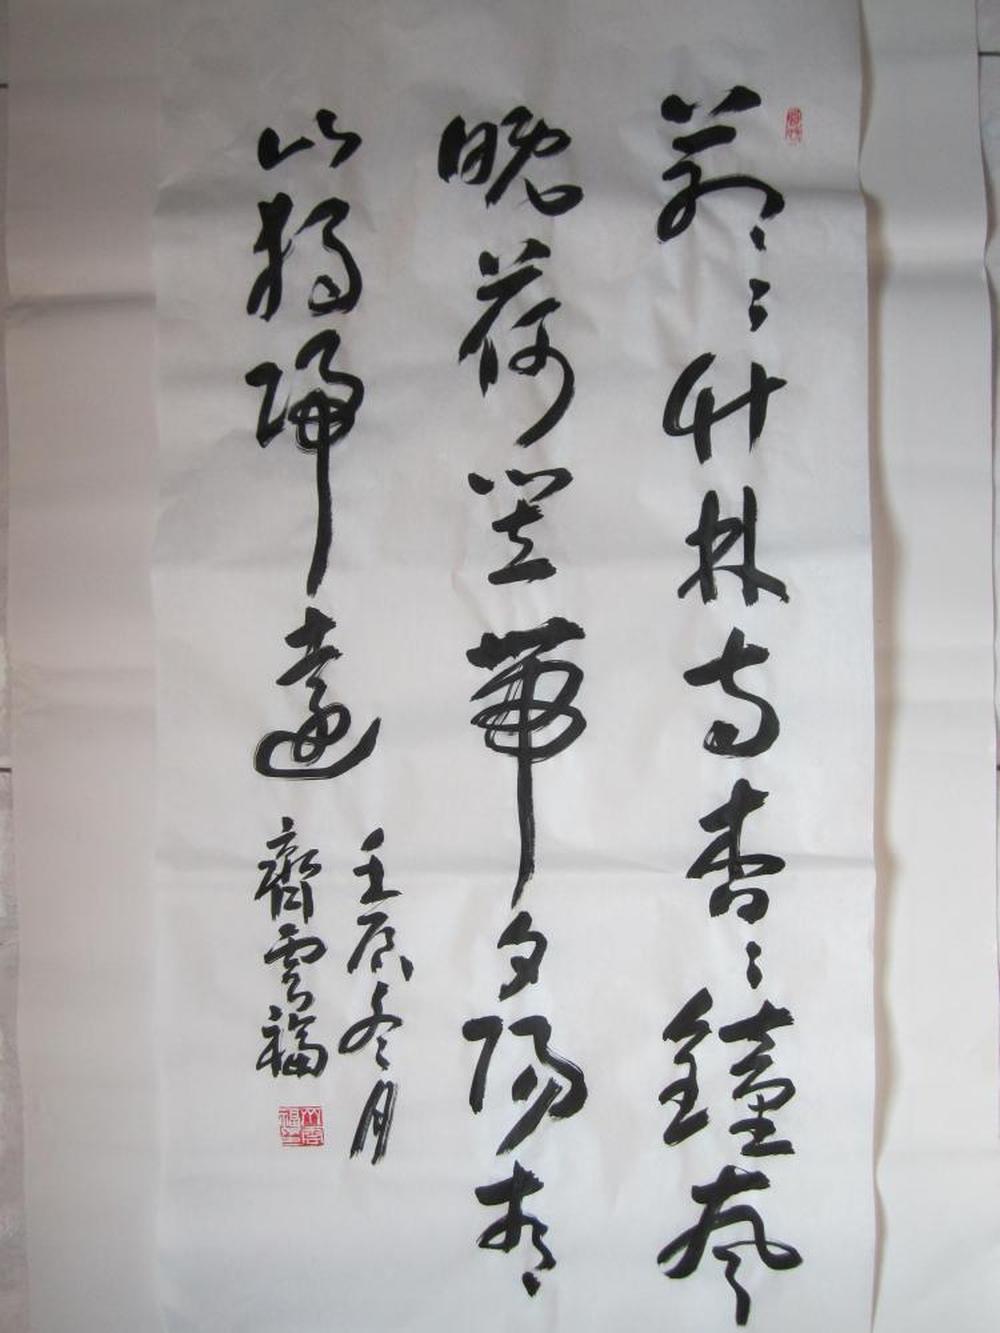 蒼〻竹林寺杳〻鐘声
晚荷笠帶夕陽青
山獨歸遠
壬辰冬月
齊雲福